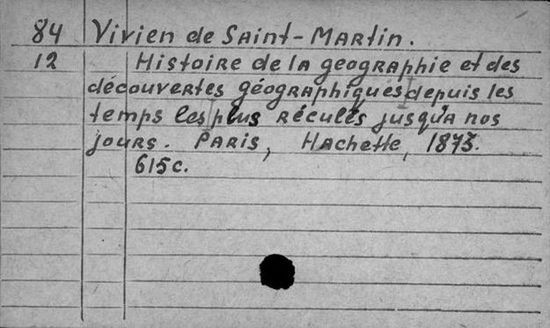 84 Vivien de Saint-Martin.
12 Histoire de la geographie et des
découvertes géographiques depuis les
temps les plus réculés jusqu'a nos
jours. Paris, Hachette, 1873.
615c.